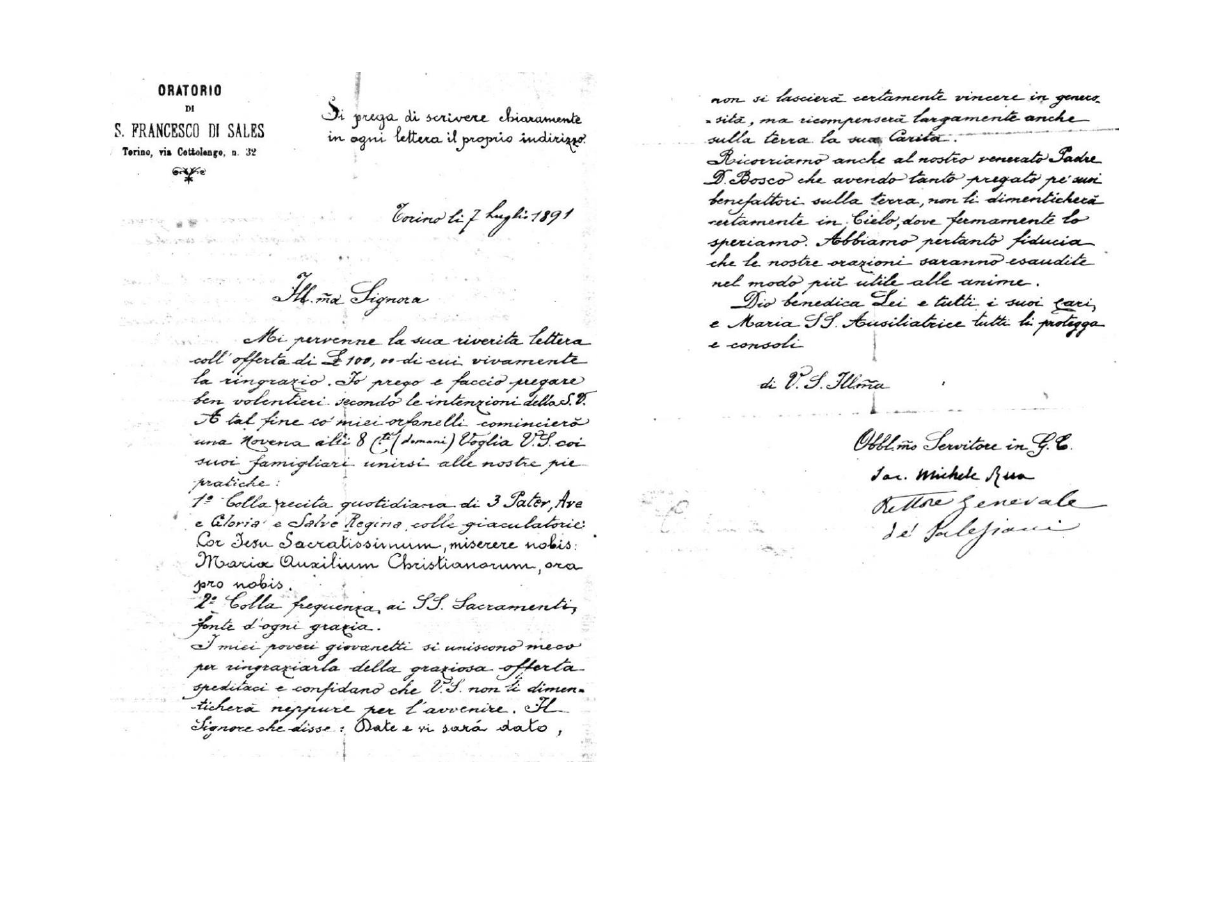 ORATORIO
DI
S. FRANCESCO DI SALES
Torino, via Cottolengo, n. 32
Si prega di scrivere chiaramente
in ogni lettera il proprio indirizzo.
Torino li 7 Luglio 1891
Ill.ma Signora
Mi pervenne la sua riverita lettera
coll' offerta di £ 100,00 di cui vivamente
la ringrazio. Io prego e faccio pregare
ben volentieri secondo le intenzioni della S.V.
A tal fine co' miei orfanelli comincierò
una Novena alli 8 (domani) Voglia V.S. coi
suoi famigliari unirsi alle nostre pie
pratiche:
1º Colla recita quotidiana di 3 Pater, Ave
e Gloria e Salve Regina colle giaculatorie
Cor Jesu Sacratissimum, miserere nobis:
Maria Auxilium Christianorum, ora
pro nobis.
2º Colla frequenza ai SS. Sacramenti,
fonte d'ogni grazia.
I miei poveri giovanetti si uniscono meco
per ringraziarla della graziosa offerta
speditaci e confidano che V.S. non li dimen=
ticherà neppure per l'avvenire. Il
Signore che disse: Date e vi sarà dato,
non si lascierà certamente vincere in genero=
=sità, ma ricompenserà largamente anche
sulla terra la sua Carità.
Ricorriamo anche al nostro venerato Padre
D. Bosco che avendo tanto pregato pe' suoi
benefattori sulla terra, non li dimenticherà
certamente in Cielo, dove fermamente lo
speriamo. Abbiamo pertanto fiducia
che le nostre orazioni saranno esaudite
nel modo più utile alle anime.
Dio benedica Lei e tutti i suoi cari,
e Maria SS. Ausiliatrice tutti li protegga
e consoli
di V. S. Illma
Obbl.mo Servitore in G.C.
Sac. Michele Rua
Rettore Generale
de' Salesiani